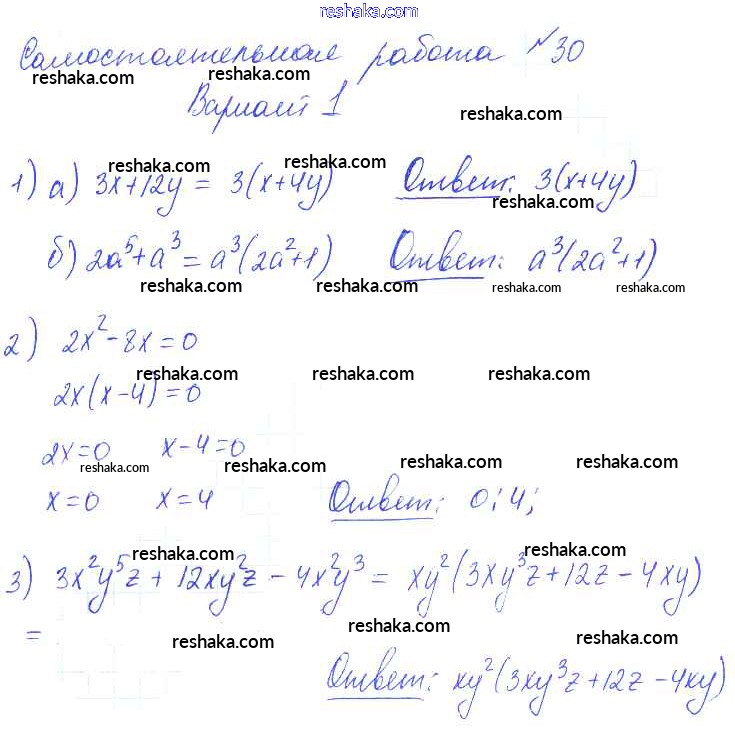 reshaka.com
Самостоятельная работа №30
reshaka.com reshaka.com reshaka.com
Вариант 1 reshaka.com
reshaka.com reshaka.com
1) а) 3x+12y = 3(x+4y) Ответ: 3(x+4y)
reshaka.com reshaka.com
б) 2a⁵+a³ = a³(2a²+1) Ответ: a³(2a²+1)
reshaka.com reshaka.com reshaka.com reshaka.com
2) 2x²-8x=0
reshaka.com reshaka.com reshaka.com
2x(x-4)=0
2x=0 x-4=0
reshaka.com reshaka.com reshaka.com reshaka.com
x=0 x=4 Ответ: 0; 4;
reshaka.com reshaka.com
3) 3x²y⁵z + 12xy²z - 4x²y³ = xy²(3xy³z+12z-4xy)
=
reshaka.com reshaka.com reshaka.com
Ответ: xy²(3xy³z+12z-4xy)